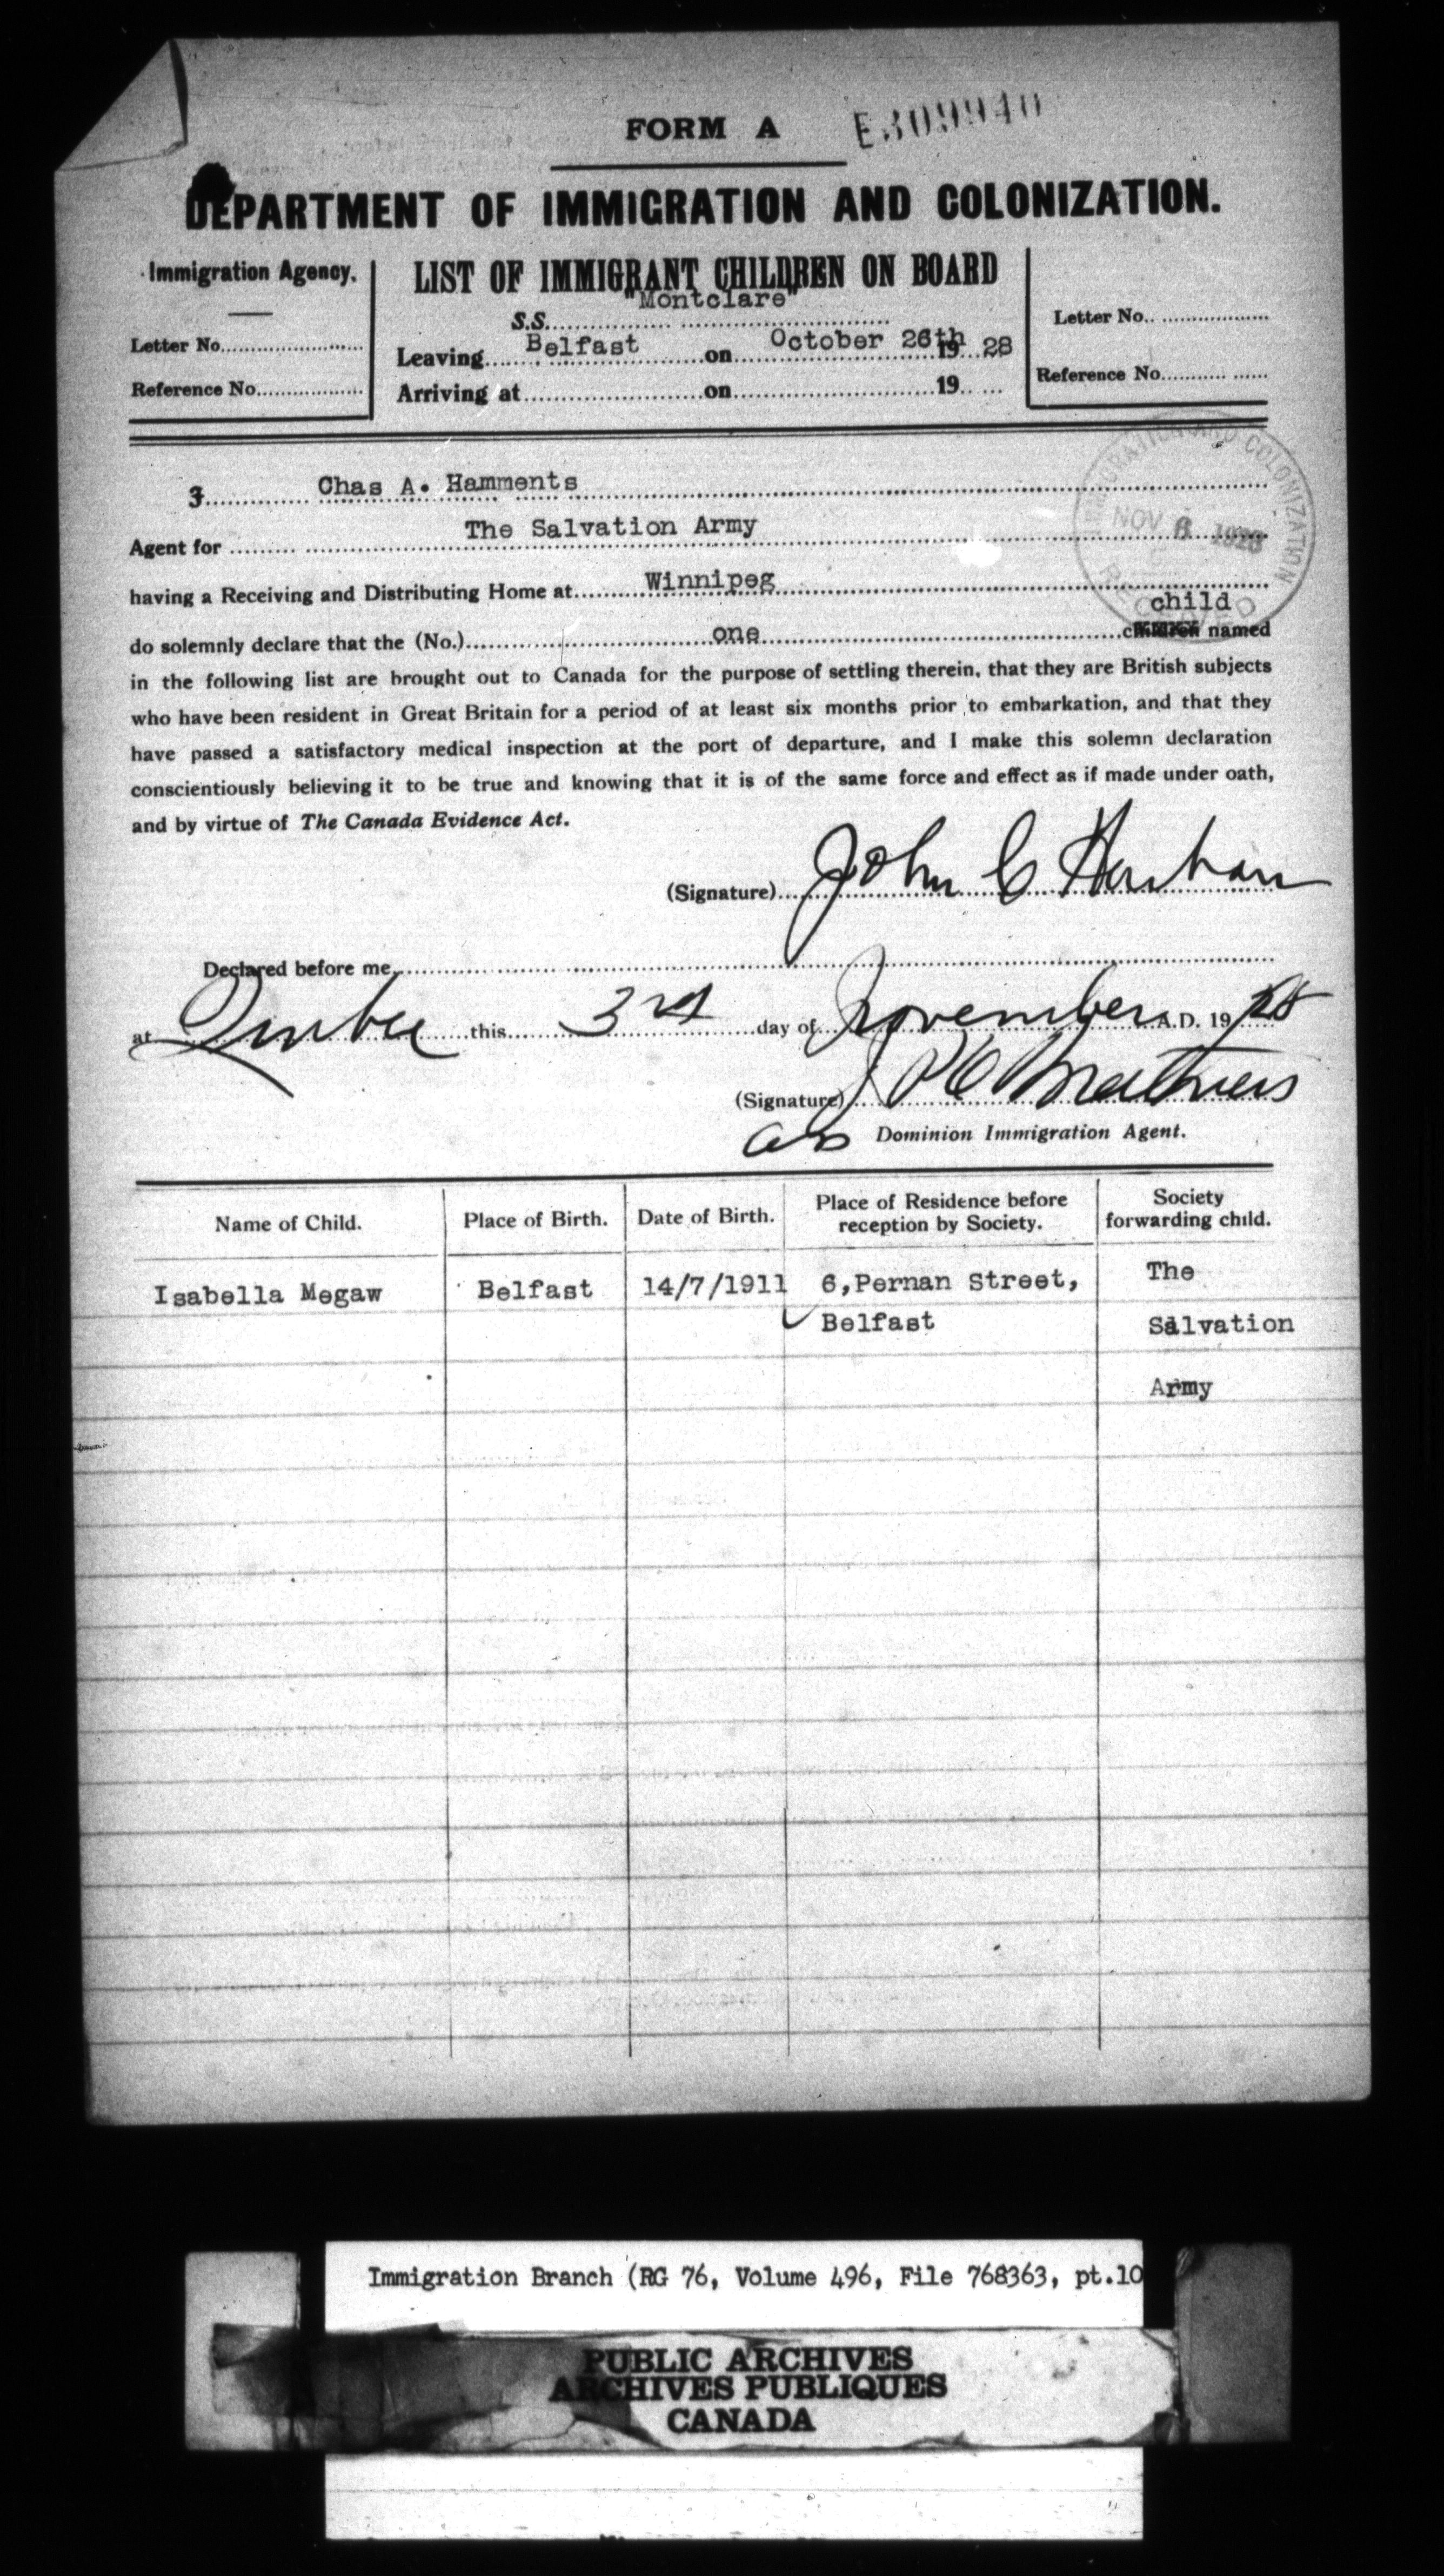 FORM A E309940
DEPARTMENT OF IMMIGRATION AND COLONIZATION.
Immigration Agency.
Letter No.
Reference No.
LIST OF IMMIGRANT CHILDREN ON BOARD
S.S. "Montclare"
Leaving Belfast on October 26th 19 28
Arriving at on 19
Letter No.
Reference No.
Chas A. Hamments
Agent for The Salvation Army
having a Receiving and Distributing Home at Winnipeg
child
do solemnly declare that the (No.) one children named
in the following list are brought out to Canada for the purpose of settling therein, that they are British subjects
who have been resident in Great Britain for a period of at least six months prior to embarkation, and that they
have passed a satisfactory medical inspection at the port of departure, and I make this solemn declaration
conscientiously believing it to be true and knowing that it is of the same force and effect as if made under oath,
and by virtue of The Canada Evidence Act.
IMMIGRATION AND COLONIZATION
NOV 6 1928
RECEIVED
(Signature) John C
Declared before me,
at Quebec this 3rd day of November A.D. 1928
(Signature) Mathers
Dominion Immigration Agent.
Name of Child. Place of Birth. Date of Birth. Place of Residence before reception by Society. Society forwarding child.
Isabella Megaw Belfast 14/7/1911 6,Pernan Street, The
Belfast Salvation
Army
Immigration Branch (RG 76, Volume 496, File 768363, pt.10
PUBLIC ARCHIVES
ARCHIVES PUBLIQUES
CANADA